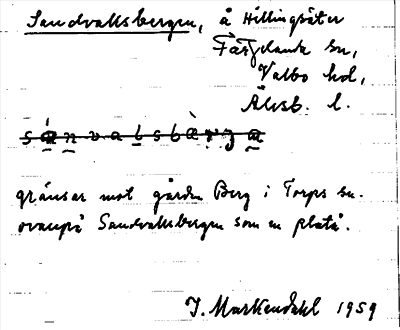 Sandvallsbergen, å Hillingsäter
Färgelanda sn,
Valbo hd,
Älvsb. l.
gränsar mot gården Berg i Torps sn.
ovanpå Sandvallsbergen som en platå.
J. Markendahl 1959